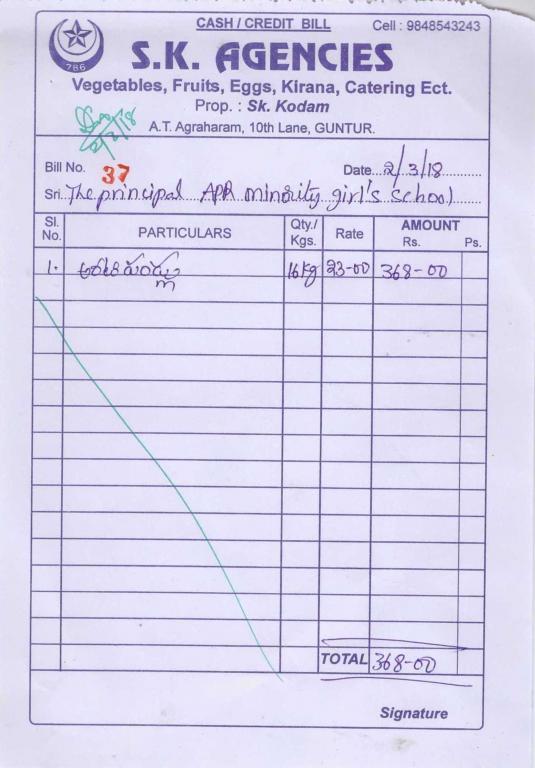 CASH / CREDIT BILL Cell : 9848543243
786
S.K. AGENCIES
Vegetables, Fruits, Eggs, Kirana, Catering Ect.
Prop. : Sk. Kodam
A.T. Agraharam, 10th Lane, GUNTUR.
Bill No. 37 Date 2/3/18
Sri. The principal APR minority girl's school
Sl. No. PARTICULARS Qty./ Kgs. Rate AMOUNT Rs. Ps.
1. అరటిపండ్లు 16kg 23-00 368-00
TOTAL 368-00
Signature